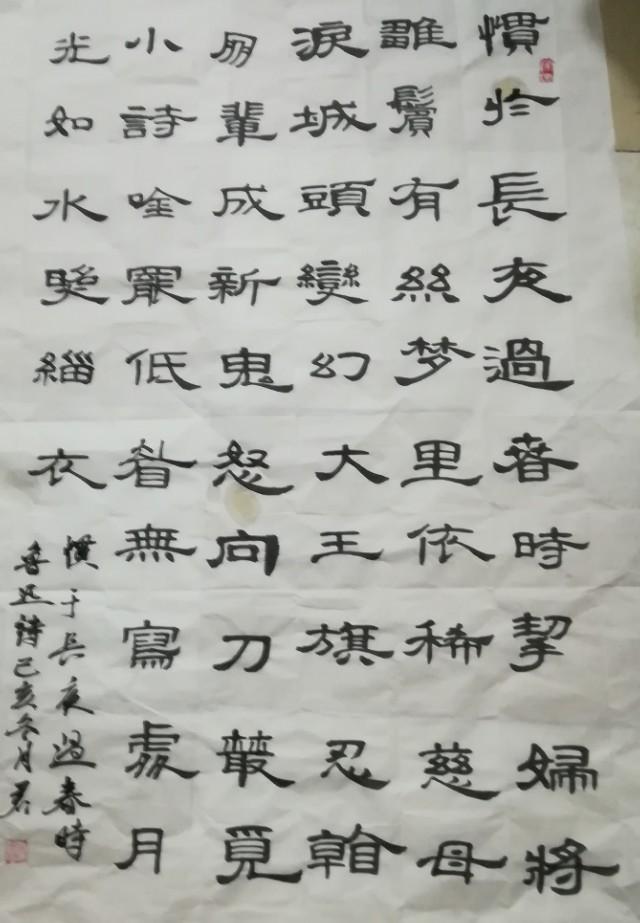 慣於長夜過春時挈婦將
雛鬢有絲梦里依稀慈母
淚城頭變幻大王旗忍看
朋輩成新鬼怒向刀叢覓
小詩唫罷低眉無寫處月
光如水照緇衣
慣于長夜過春時
魯迅詩己亥冬月君